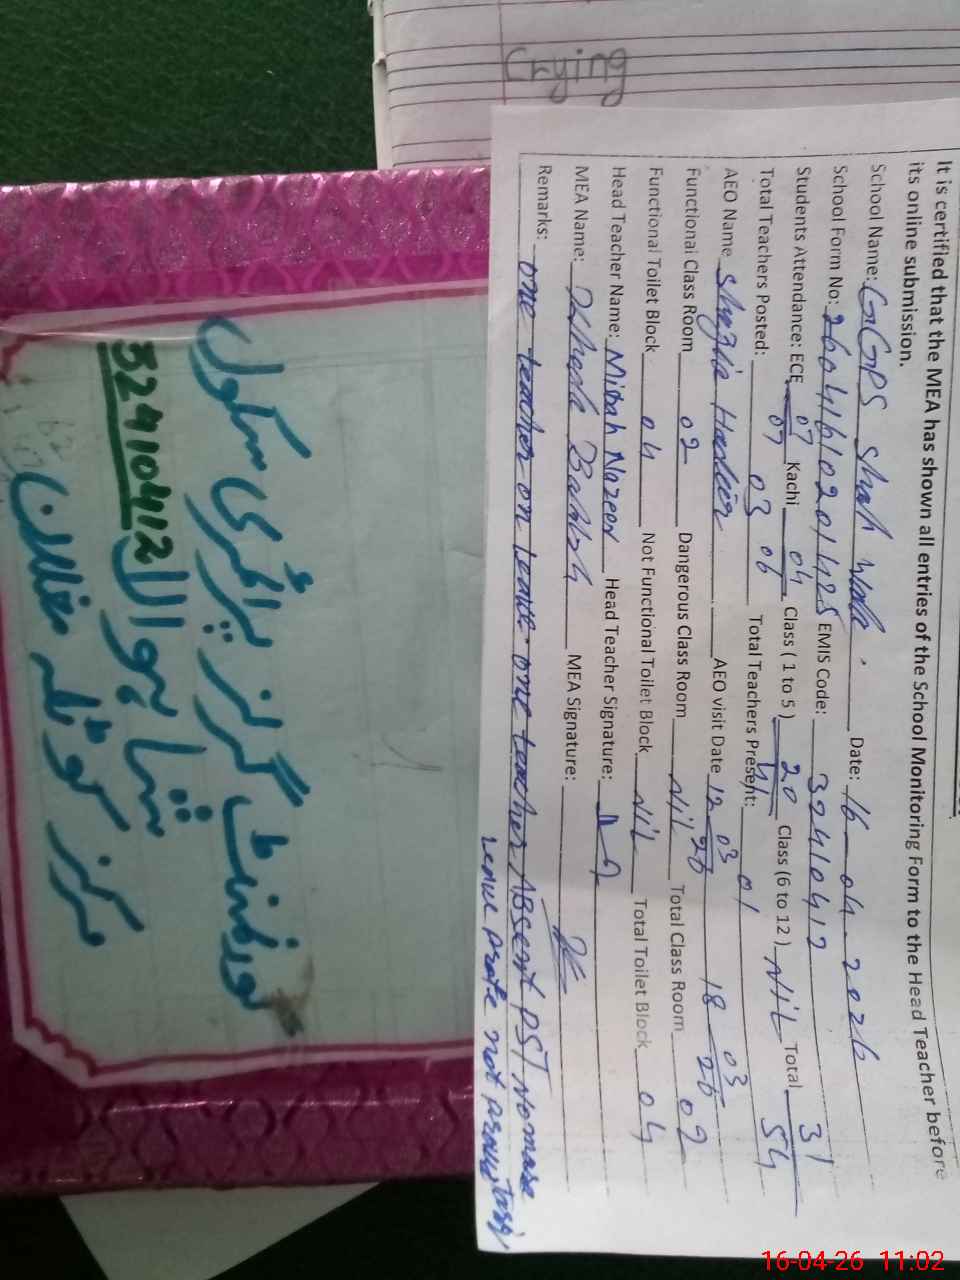 Crying
It is certified that the MEA has shown all entries of the School Monitoring Form to the Head Teacher before
its online submission.
School Name: GGPS Shah Wala. Date: 16-04-2026
School Form No: EMIS Code: 32410412
Students Attendance: ECE 07/07 Kachi 04/06 Class ( 1 to 5 ) 20/41 Class (6 to 12) NIL Total 31/54
Total Teachers Posted: 03 Total Teachers Present: 01
AEO Name AEO visit Date 12 03 26 18 03 26
Functional Class Room 02 Dangerous Class Room Nil Total Class Room 02
Functional Toilet Block 04 Not Functional Toilet Block NIL Total Toilet Block 04
Head Teacher Name: Misbah Nazeer Head Teacher Signature:
MEA Name: MEA Signature:
Remarks: one teacher on leave. one teacher Absent PST
leave not
گورنمنٹ گرلز پرائمری سکول
شاہ والا
32410412
مرکز
16-04-26 11:02